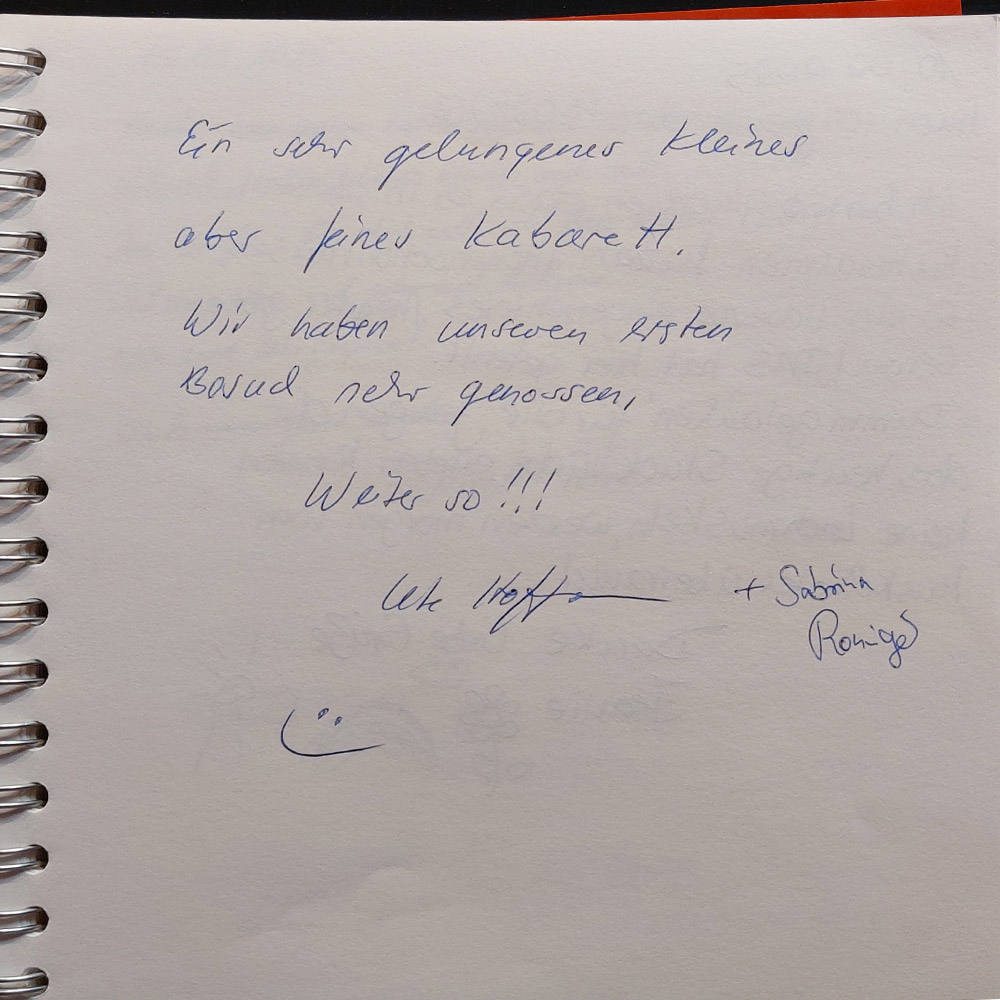 Ein sehr gelungenes kleines
aber feines Kabarett.
Wir haben unseren ersten
Besuch sehr genossen,
Weiter so!!!
Ute + Sabrina